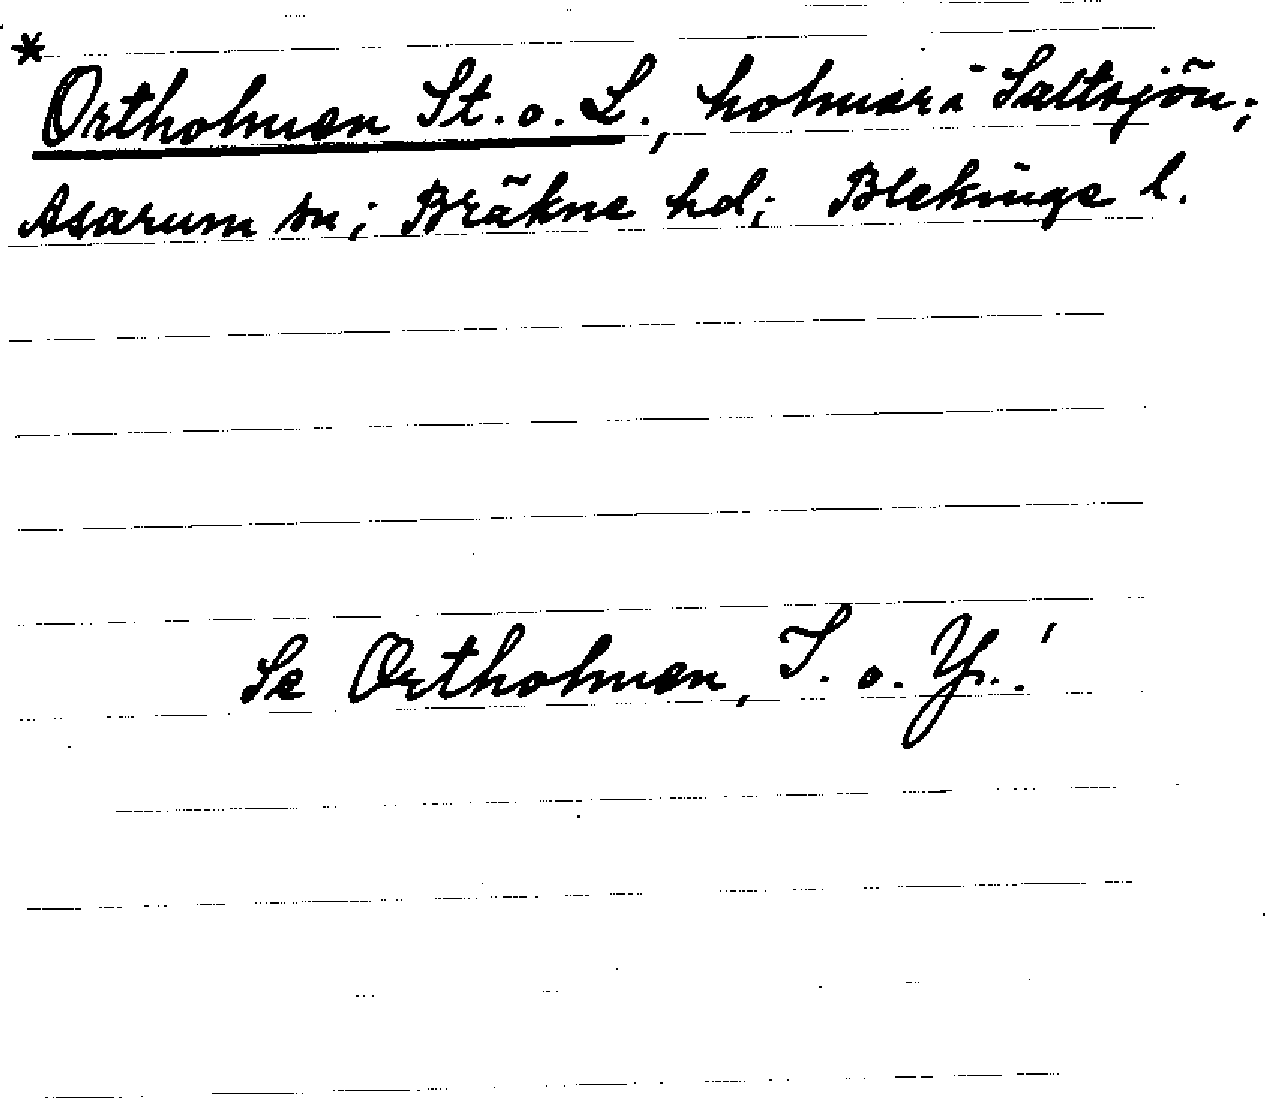 *
Ortholmen St. o. L., holmar i Saltsjön;
Asarum sn; Bräkne hd; Blekinge l.
Se Ortholmen, I. o. Y.!